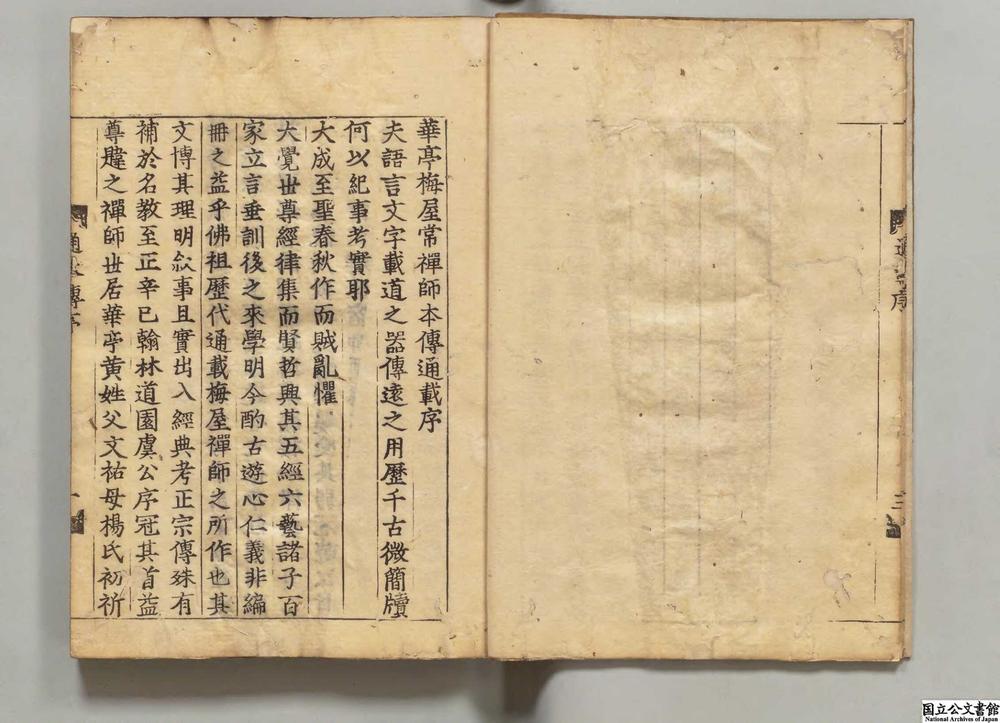 序
三
華亭梅屋常禪師本傳通載序
夫語言文字載道之器傳遠之用歷千古微簡牘
何以紀事考實耶
大成至聖春秋作而賊亂懼
大覺世尊經律集而賢哲興其五經六藝諸子百
家立言垂訓後之來學明今酌古遊心仁義非編
冊之益乎佛祖歷代通載梅屋禪師之所作也其
文博其理明敘事且實出入經典考正宗傳殊有
補於名教至正辛巳翰林道園虞公序冠其首益
尊韙之禪師世居華亭黃姓父文祐母楊氏初祈
通
傳序
一
国立公文書館
National Archives of Japan